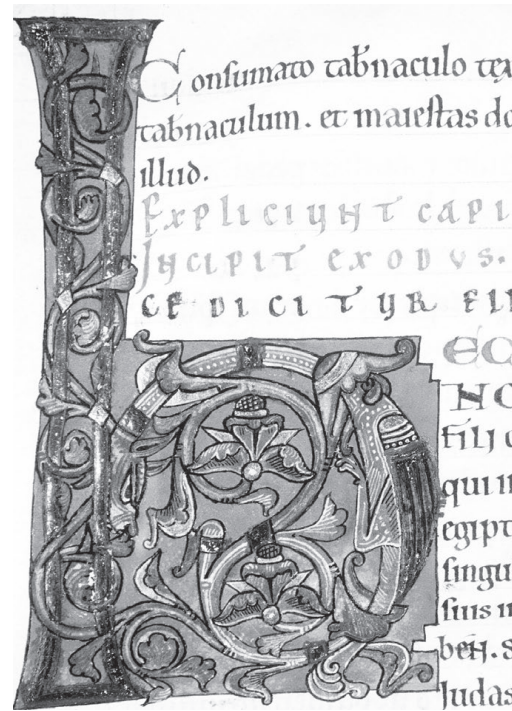 Consumato tab̄naculo
tab̄naculum. et maiestas do
illud.
Expliciunt capi
Incipit exodus.
ce dicitur
EC
filij
qui
egipt
singu
suis
ben. s
Judas